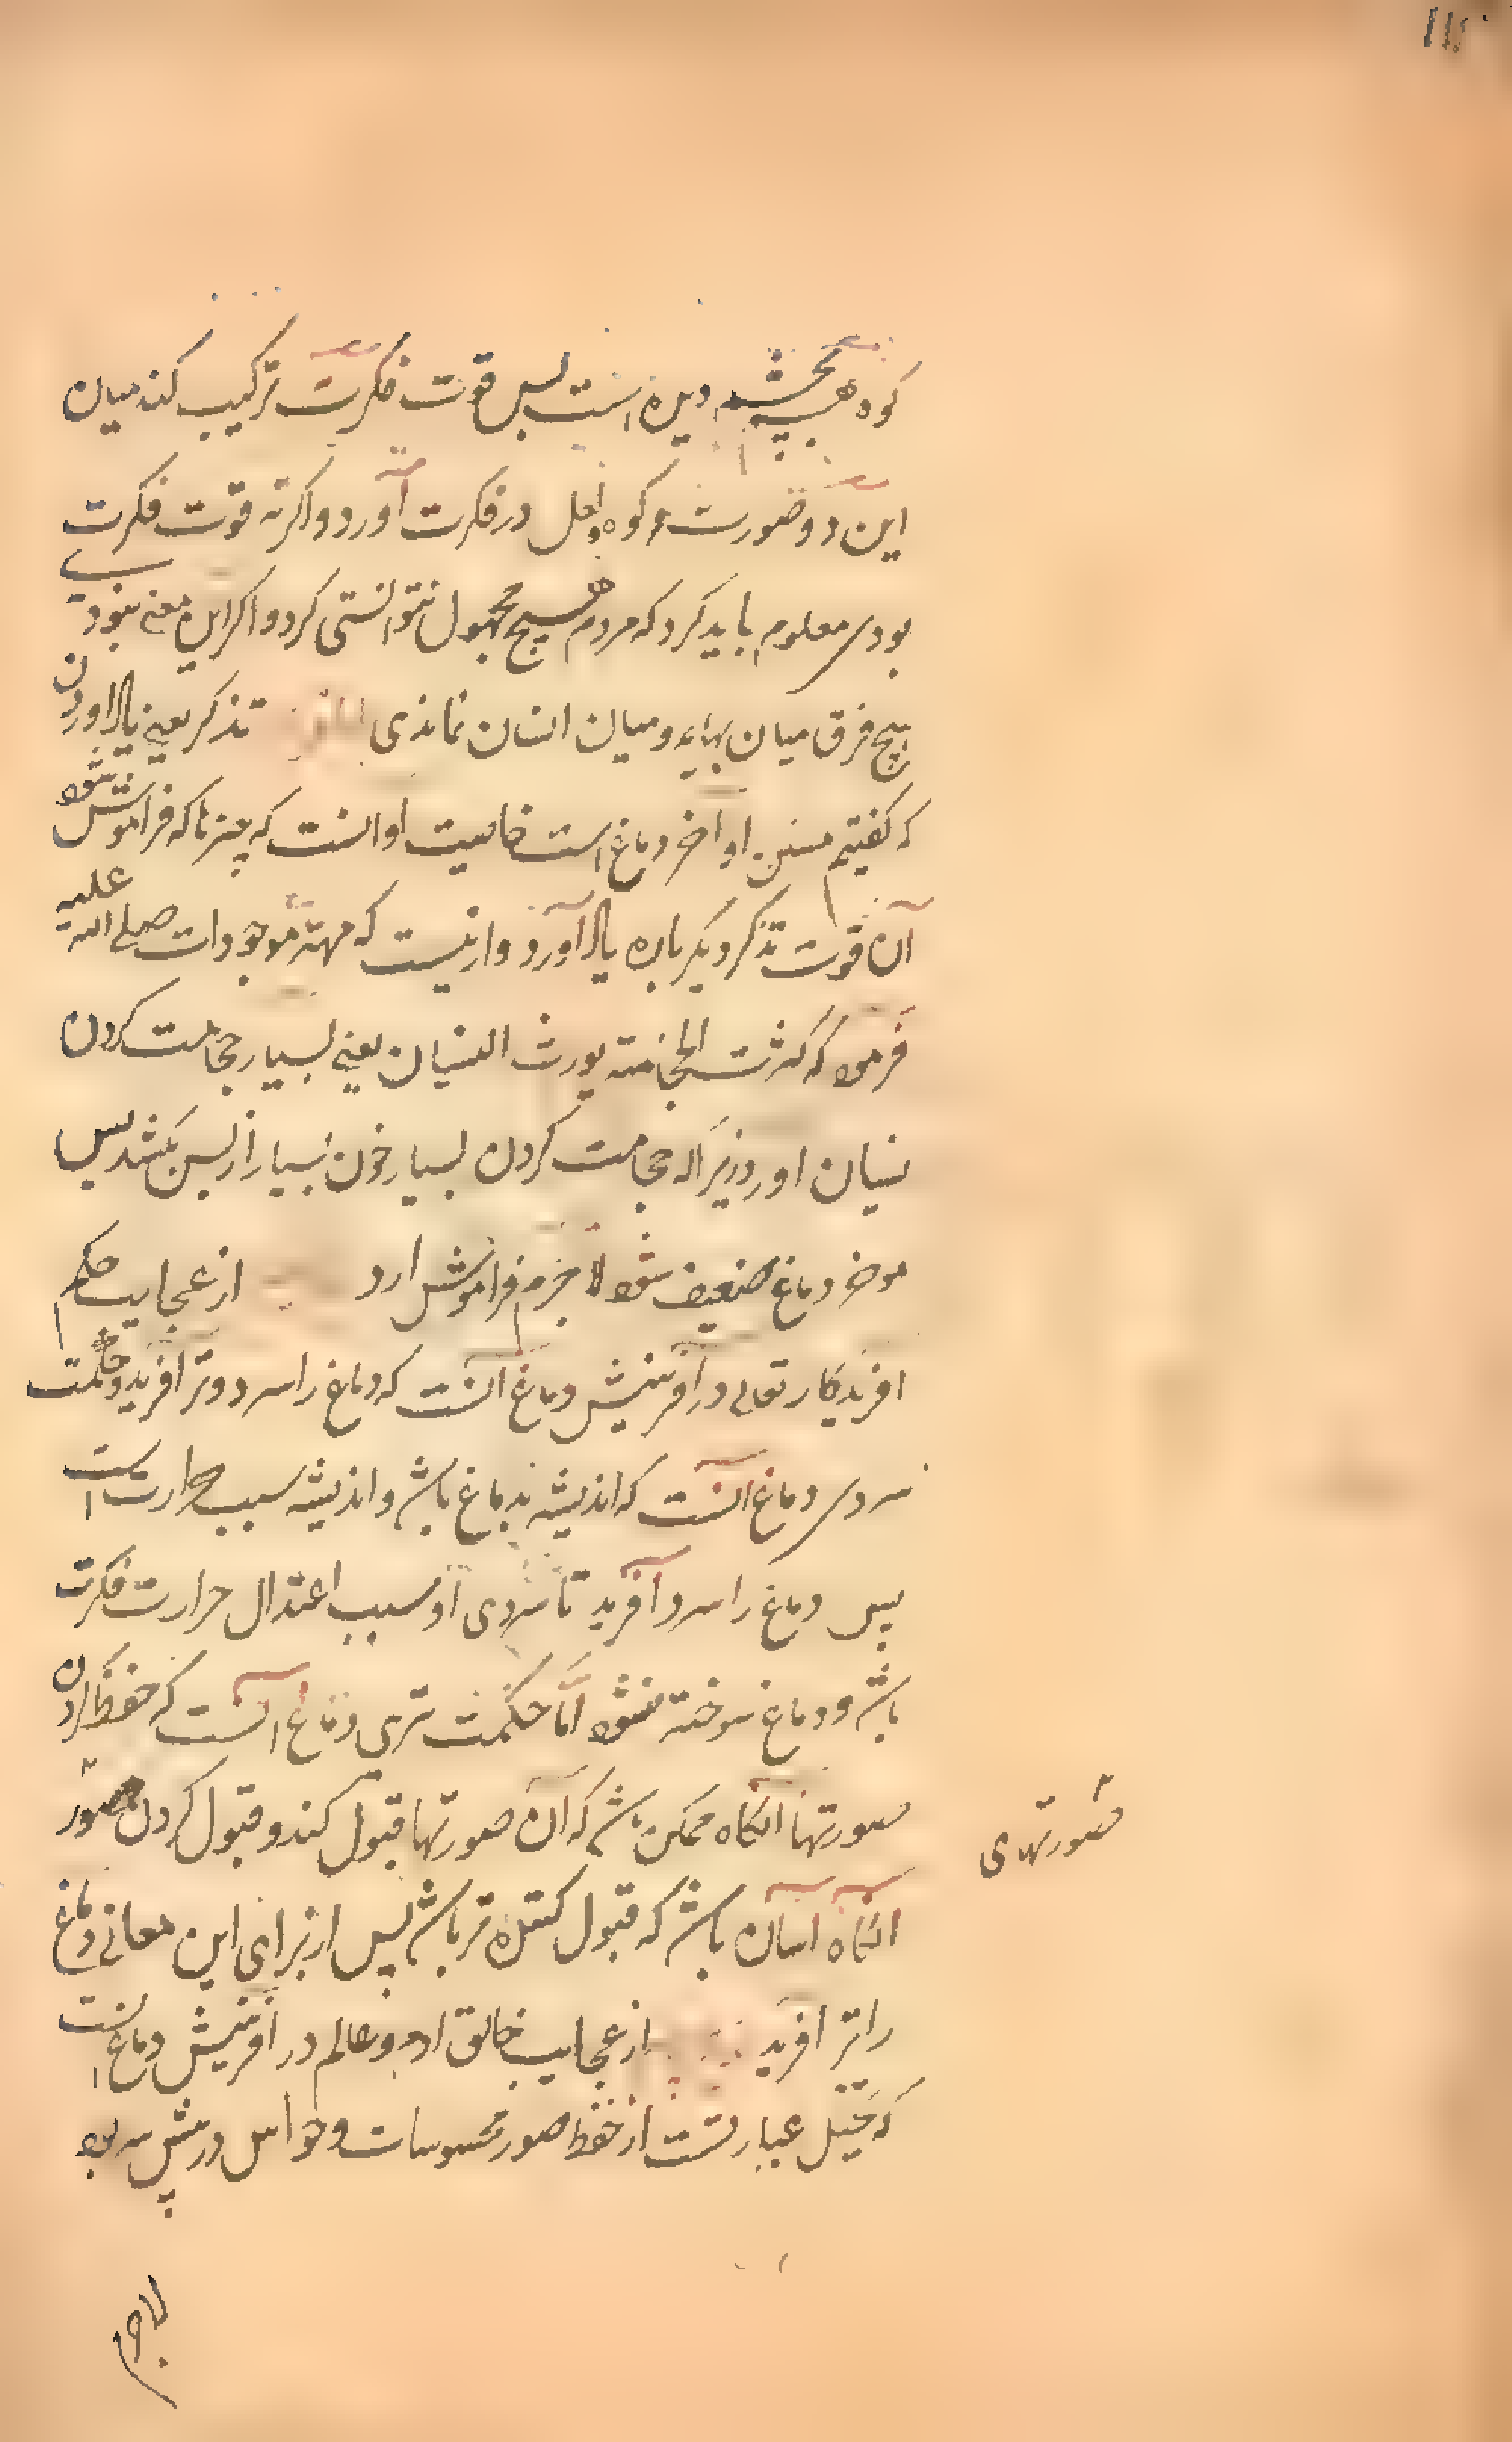 کوه همیشه بچشم دیده است پس قوت فکرت ترکیب کند میان
این دو صورت و کوه لعل در فکرت آورد و اکر نه قوت فکرت
بودی معلوم باید کرد که مردم هیچ مجهول نتوانستی کرد و اکر این معنی نبودی
هیچ فرق میان بهایم و میان انسان نماندی تذکر یعنی یاد اوردن
که کفتیم مسکن او آخر دماغ است خاصیت او انست که چیزها که فراموش شود
آن قوت تذکر دیکر باره یاد آورد و ازینست که مهتر موجودات صلی الله علیه
فرمود که کثرت الحجامة یورث النسیان یعنی بسیار حجامت کردن
نسیان اورد زیراکه حجامت کردن بسیار خون بسیار از پس بکشد پس
موخر دماغ ضعیف شود لاجرم فراموشی ارد از عجایب حکم
افریدکار تعالی در آفرینش دماغ آنست که دماغ را سرد و تر افرید و حکمت
سردی دماغ آنست که اندیشه بدماغ باشد و اندیشه سبب حرارت است
پس دماغ را سرد آفرید تا سردی او سبب اعتدال حرارت فکرت
باشد و دماغ سوخته نشود امّا حکمت تری دماغ آنست که حفظ کردن
صورتها انکاه ممکن باشد که آن صورتها قبول کند و قبول کردن صور
صورتهای
انکاه اسان باشد که قبول کننده تر باشد پس از برای این معانی دماغ
را تر افرید از عجایب خالق ادم و عالم در افرینش دماغ انست
که تخیل عبارتست از حفظ صور محسوسات و حواس در پیش سر بود
لاجرم